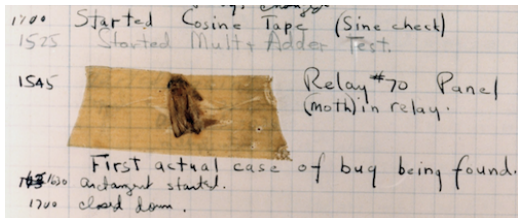 1700 Started Cosine Tape (Sine check)
1525 Started Mult + Adder Test.
1545 Relay #70 Panel
(moth) in relay.
First actual case of bug being found.
1630 antangent started.
1700 closed down.